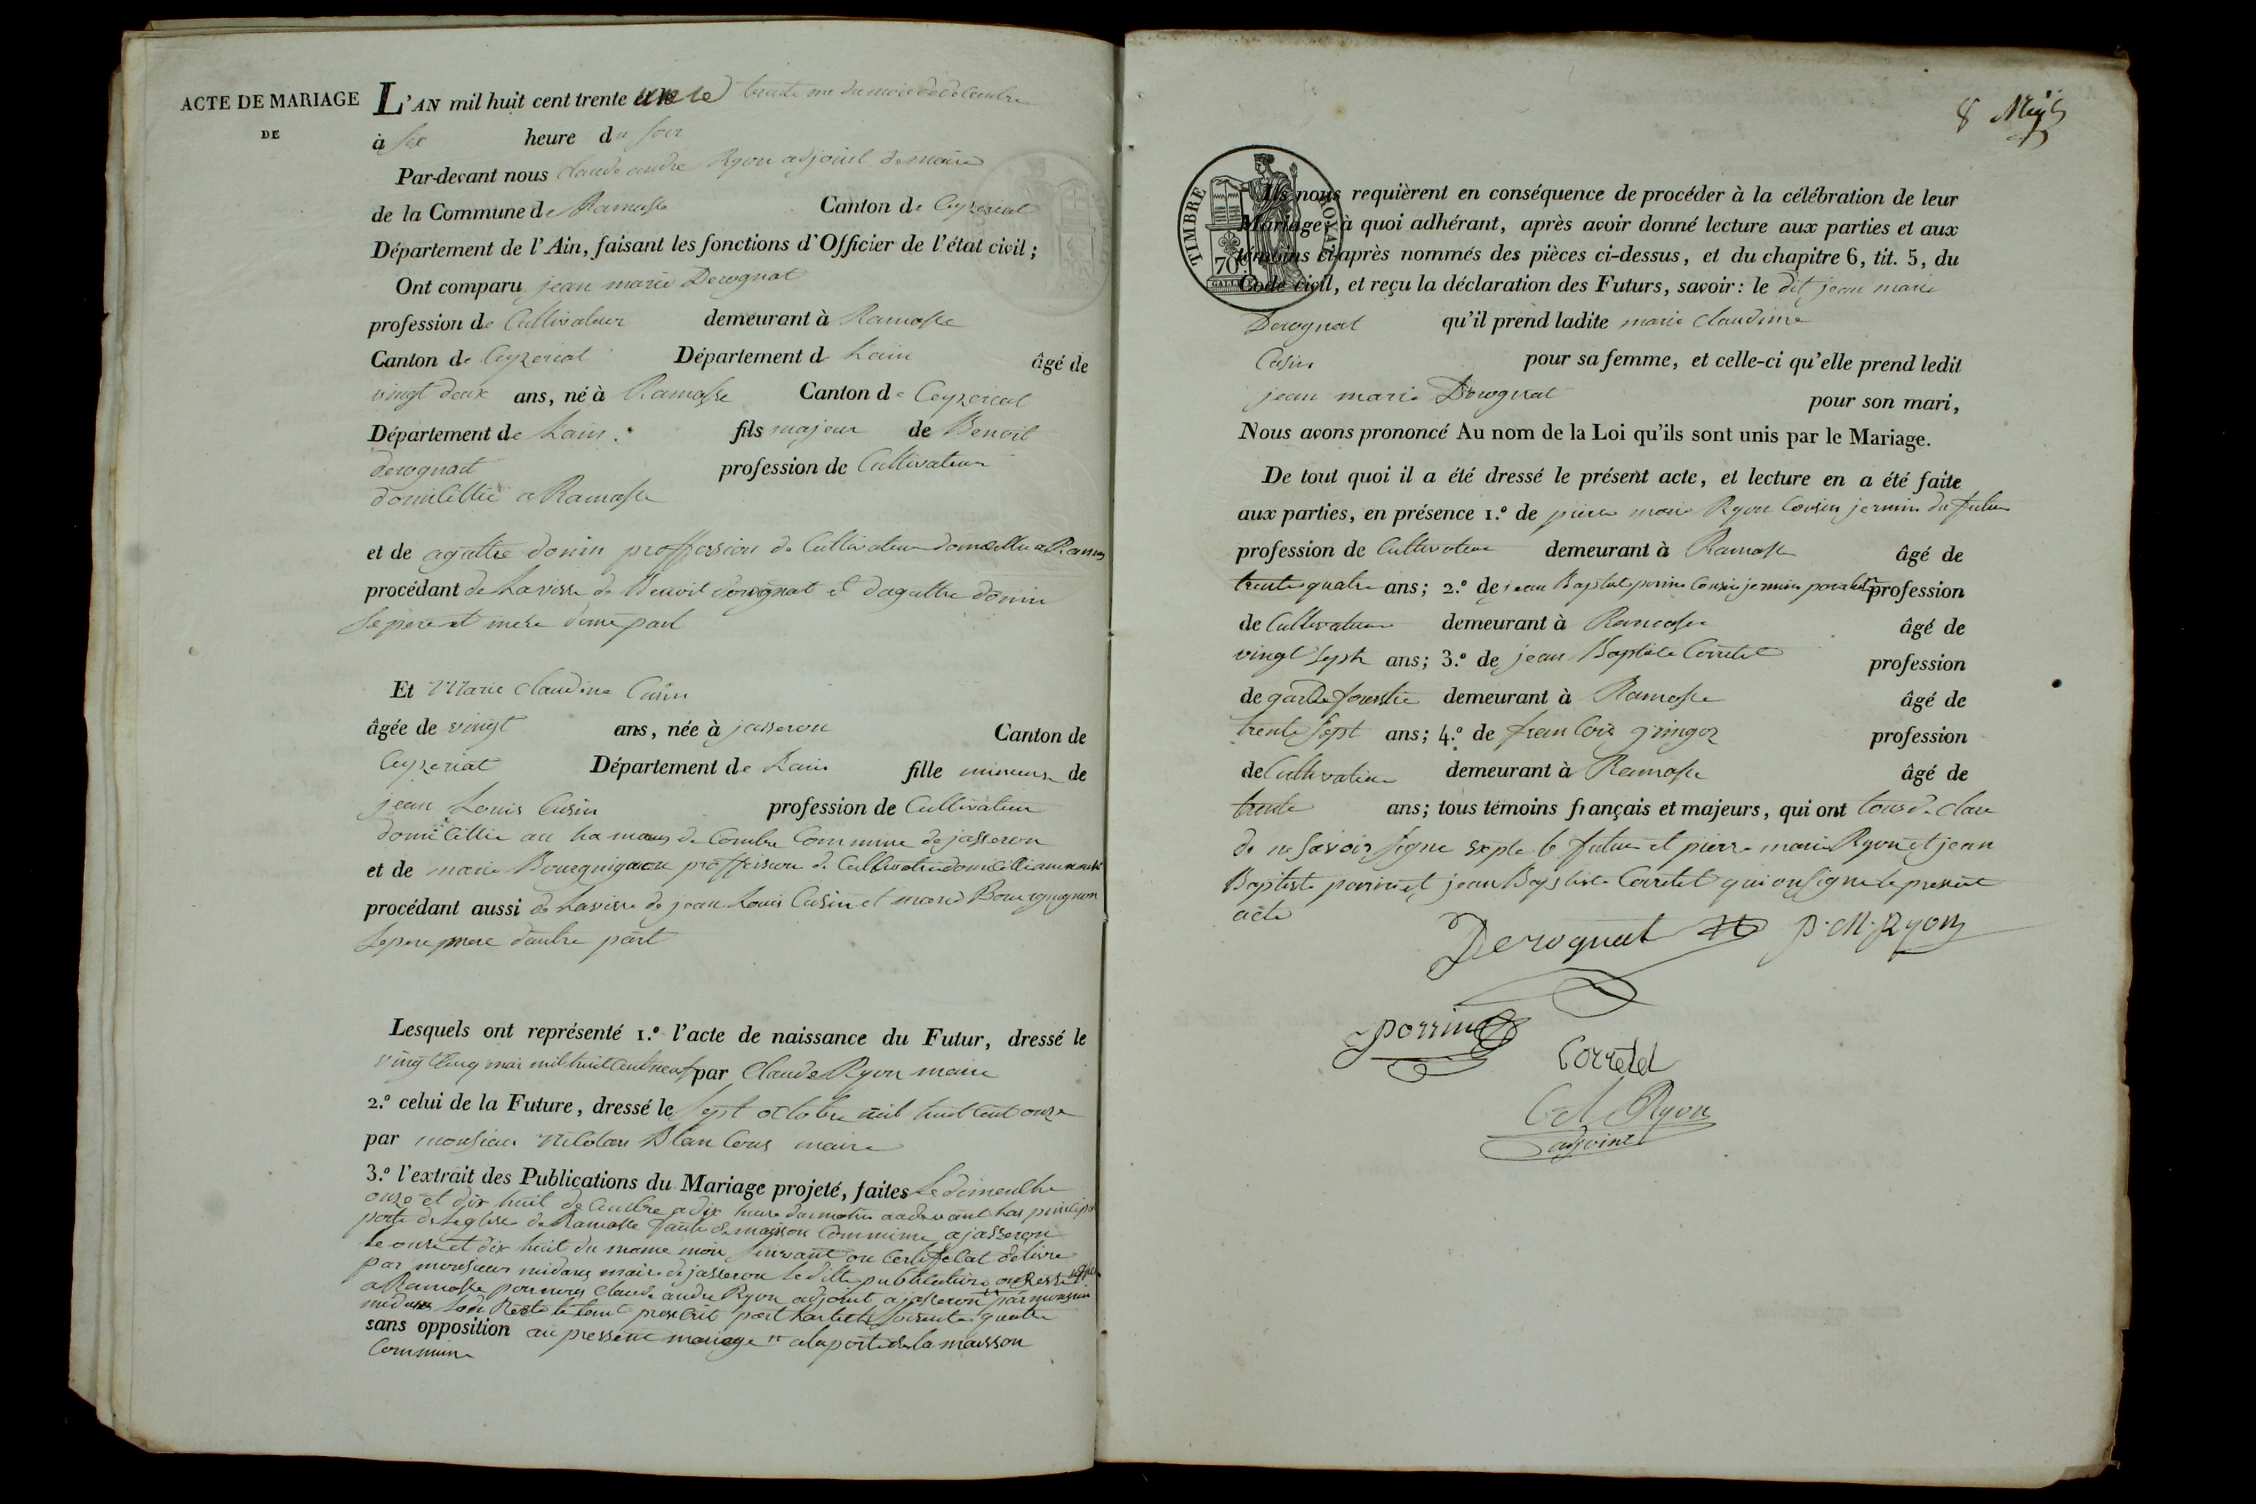 ACTE DE MARIAGE
DE
L'AN mil huit cent trente un le trente un du mois de décembre
à six heure du soir
Par-devant nous Claude andré Ryon adjoint de maire
de la Commune de Ramasse Canton de Ceyzeriat
Département de l'Ain, faisant les fonctions d'Officier de l'état civil ;
Ont comparu jean marie Derognat
profession de Cultivateur demeurant à Ramasse
Canton de Ceyzeriat Département de Lain âgé de
vingt deux ans, né à Ramasse Canton de Ceyzeriat
Département de Lain. fils majeur de Benoit
derognat profession de Cultivateur
domicillié a Ramasse
et de agathe donin proffession de Cultivateur domicillié a Ramas
procédant de Lavisse de Benoit derognat et dagathe donin
Se pere et mere dune part
Et Marie Claudine Cusin
âgée de vingt ans, née à jasseron Canton de
Ceyzeriat Département de Lain fille mineure de
jean Louis Cusin profession de Cultivateur
domicillié au hamaus de Combe Commune de jasseron
et de marie Bourguignon proffission de Cultivatrice
procédant aussi de Lavisse de jean Louis Cusin et marie Bourguignon
Se pere mere dautre part
Lesquels ont représenté 1.º l'acte de naissance du Futur, dressé le
vingt Cinq mai mil huit Cent neuf par Claude Ryon maire
2.º celui de la Future, dressé le Sept octobre mil huit Cent onze
par monsieur nicolas maire
3.º l'extrait des Publications du Mariage projeté, faites Le dimenche
onze et dix huit décembre a dix heure du matin au devant Las principa
porte de Leglise de Ramasse faute de maison Commune a jasseron
Le onze et dix huit du mame mois Suivant ou Certificat délivré
par monsieur midans maire de jasseron Le ditte publication
a Ramasse par nous Claude andre Ryon adjoint a jasseron par monsieur
midans Code le tout prescrit part Larticle Soixente quatre
sans opposition au pressent mariage a la porte de la maisson
Commune
8 
TIMBRE ROYAL
70
Ils nous requièrent en conséquence de procéder à la célébration de leur
Mariage; à quoi adhérant, après avoir donné lecture aux parties et aux
témoins ci-après nommés des pièces ci-dessus, et du chapitre 6, tit. 5, du
Code civil, et reçu la déclaration des Futurs, savoir: le dit jean marie
Derognat qu'il prend ladite marie Claudine
Cusin pour sa femme, et celle-ci qu'elle prend ledit
jean marie Derognat pour son mari,
Nous avons prononcé Au nom de la Loi qu'ils sont unis par le Mariage.
De tout quoi il a été dressé le présent acte, et lecture en a été faite
aux parties, en présence 1.º de pierre marie Ryon Cousin jermin du futur
profession de Cultivateur demeurant à Ramasse âgé de
trente quatre ans; 2.º de jean Baptiste perrin Cousin jermin profession
de Cultivateur demeurant à Ramasse âgé de
vingt Sept ans; 3.º de jean Baptiste Corretel profession
de garde forestie demeurant à Ramasse âgé de
trente Sept ans; 4.º de francois gringoz profession
de Cultivateur demeurant à Ramasse âgé de
trente ans; tous témoins français et majeurs, qui ont tous de Clare
de ne Savoir Signe le futur et pierre marie Ryon et jean
Baptiste perrin et jean Baptiste Corretel qui on Signe le present
acte
Derognat P. M. Ryon
perrin
Corretel
C A Ryon
adjoint